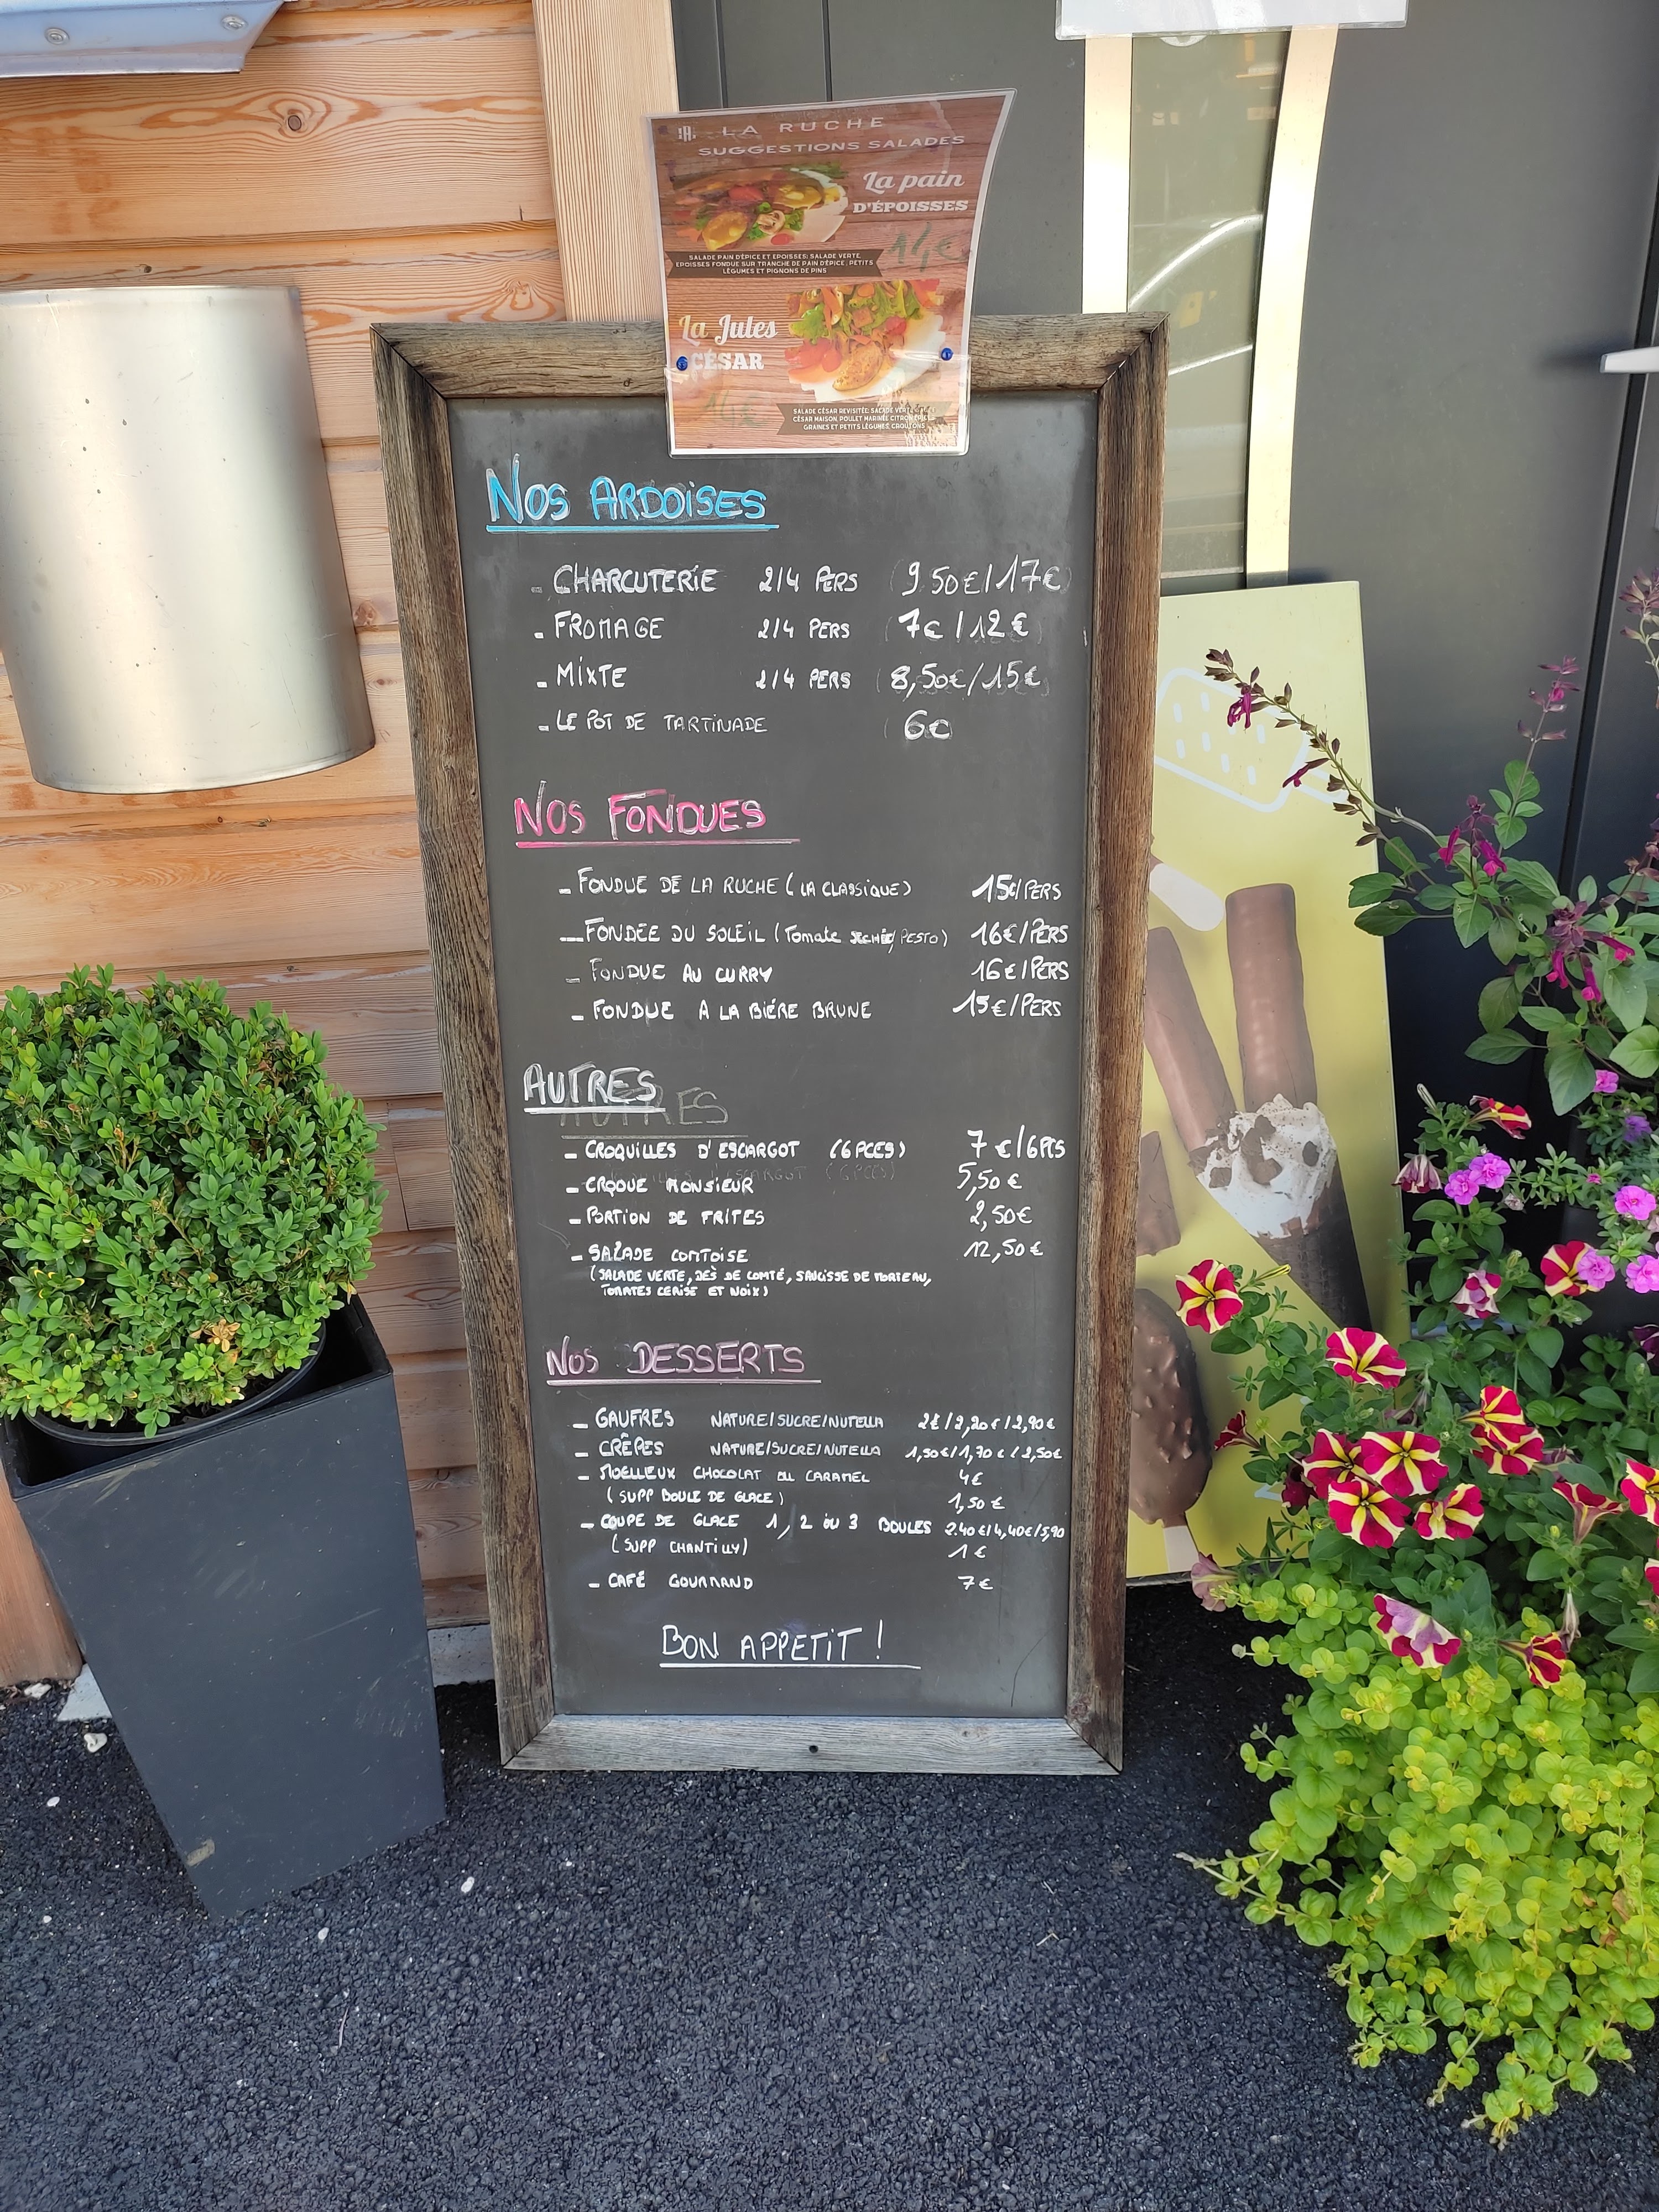 LA RUCHE
SUGGESTIONS SALADES
La pain
D'ÉPOISSES
14€
SALADE PAIN D'ÉPICE ET EPOISSES: SALADE VERTE,
EPOISSES FONDUE SUR TRANCHE DE PAIN D'ÉPICE, PETITS
LÉGUMES ET PIGNONS DE PINS
La Jules
CÉSAR
14€
SALADE CÉSAR REVISITÉE: SALADE VERTE,
CÉSAR MAISON, POULET MARINÉE CITRON
GRAINES ET PETITS LÉGUMES, CROUTONS
NOS ARDOISES
- CHARCUTERIE 2/4 PERS 9.50€/17€
- FROMAGE 2/4 PERS 7€/12€
- MIXTE 2/4 PERS 8,50€/15€
- LE POT DE TARTINADE 6€
NOS FONDUES
- FONDUE DE LA RUCHE (LA CLASSIQUE) 15€/PERS
- FONDEE DU SOLEIL (Tomate SECHÉE/PESTO) 16€/PERS
- FONDUE AU CURRY 16€/PERS
- FONDUE A LA BIÉRE BRUNE 15€/PERS
AUTRES
AUTRES
- CROQUILLES D'ESCARGOT (6PCES) 7€/6PCS
- CROQUE MONSIEUR 5,50€
- PORTION DE FRITES 2,50€
- SALADE COMTOISE 12,50€
(SALADE VERTE, DÈS DE COMTÉ, SAUCISSE DE MORTEAU,
TOMATES CERISE ET NOIX)
NOS DESSERTS
- GAUFRES NATURE/SUCRE/NUTELLA 2€/2,20€/2,90€
- CRÊPES NATURE/SUCRE/NUTELLA 1,50€/1,70€/2,50€
- MOELLEUX CHOCOLAT OU CARAMEL 4€
(SUPP BOULE DE GLACE) 1,50€
- COUPE DE GLACE 1, 2 OU 3 BOULES 2.40€/4,40€/5,90
(SUPP CHANTILLY) 1€
- CAFÉ GOURMAND 7€
BON APPETIT !